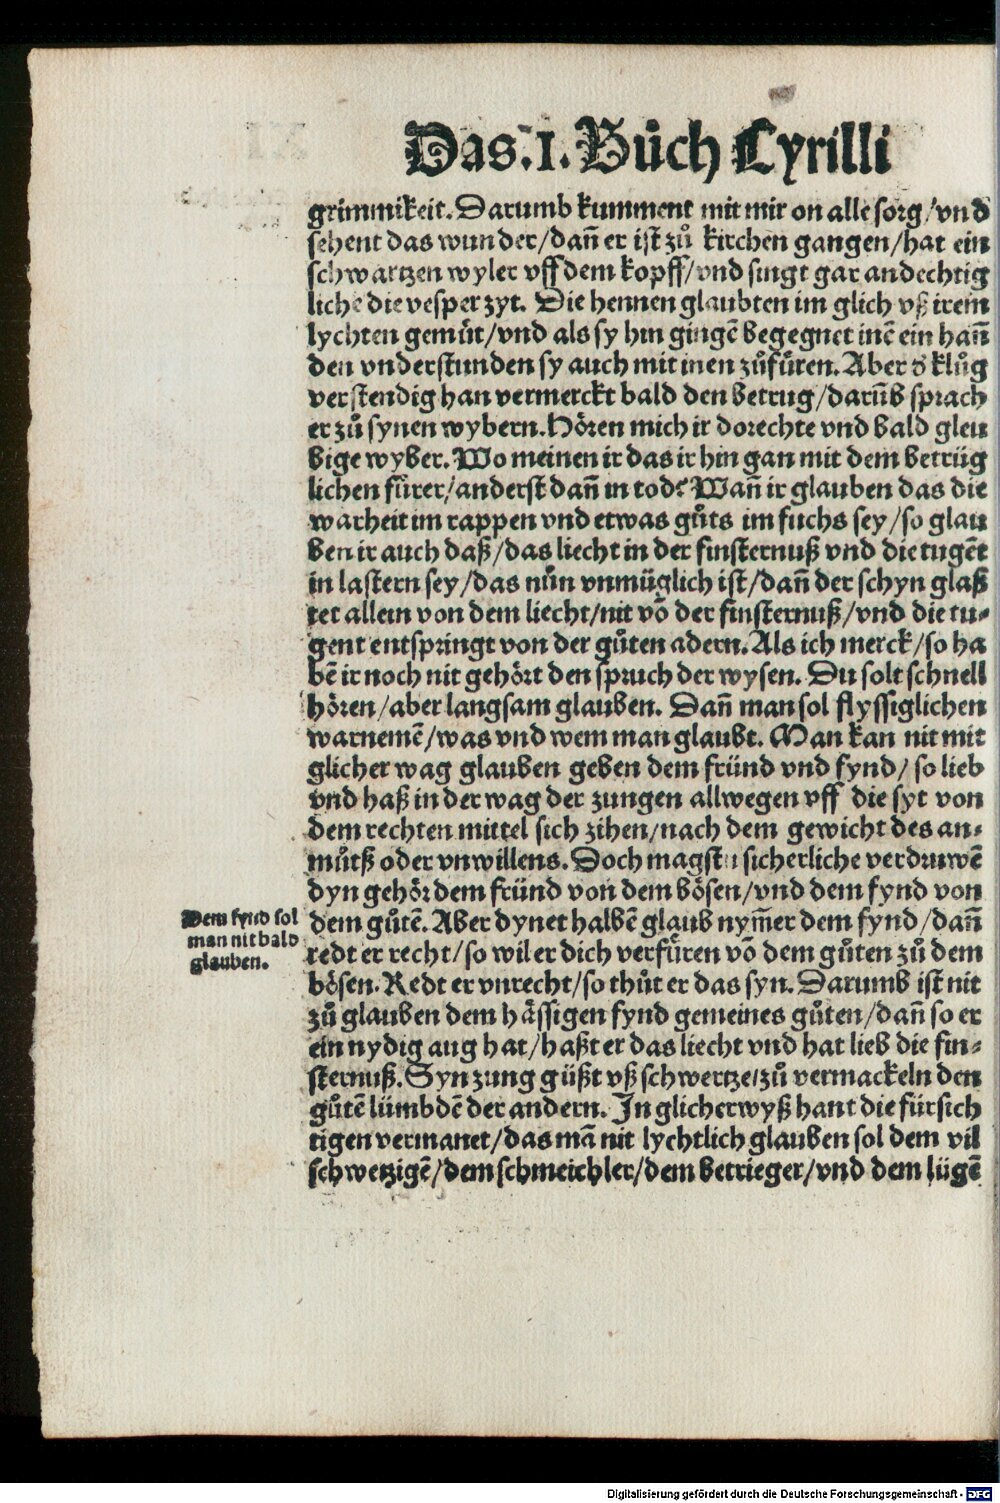 Das .I. Bůch Cyrilli
grimmikeit. Darumb kumment mit mir on alle sorg / vnd
sehent das wunder / dan̄ er ist zů kirchen gangen / hat ein
schwartzen wyler vff dem kopff / vnd singt gar andechtig
liche die vesper zyt. Die hennen glaubten im glich vß irem
lychten gemůt / vnd als sy hin gingē begegnet inē ein han̄
den vnderstunden sy auch mit inen zůfůren. Aber d̕ klůg
verstendig han vermerckt bald den betrug / darūb sprach
er zů synen wybern. Hören mich ir dorechte vnd bald gleu
bige wyber. Wo meinen ir das ir hin gan mit dem betrüg
lichen fůrer / anderst dan̄ in tod? Wan̄ ir glauben das die
warheit im rappen vnd etwas gůts im fuchs sey / so glau
ben ir auch daß / das liecht in der finsternuß vnd die tugēt
in lastern sey / das nůn vnmüglich ist / dan̄ der schyn glaß
tet allein von dem liecht / nit vō der finsternuß / vnd die tu⸗
gent entspringt von der gůten adern. Als ich merck / so ha
bē ir noch nit gehört den spruch der wysen. Du solt schnell
hören / aber langsam glauben. Dan̄ man sol flyssiglichen
warnemē / was vnd wem man glaubt. Man kan nit mit
glicher wag glauben geben dem fründ vnd fynd / so lieb
vnd haß in der wag der zungen allwegen vff die syt von
dem rechten mittel sich zihen / nach dem gewicht des an⸗
můtß oder vnwillens. Doch magstu sicherliche verdruwē
dyn gehör dem fründ von dem bösen / vnd dem fynd von
dem gůtē. Aber dynet halbē glaub nym̄er dem fynd / dan̄
redt er recht / so wil er dich verfůren vō dem gůten zů dem
bösen. Redt er vnrecht / so thůt er das syn. Darumb ist nit
zů glauben dem hässigen fynd gemeines gůten / dan̄ so er
ein nydig aug hat / haßt er das liecht vnd hat lieb die fin⸗
sternuß. Syn zung güßt vß schwertze / zů vermackeln den
gůtē lümbdē der andern. In glicherwyß hant die fürsich
tigen vermanet / das mā nit lychtlich glauben sol dem vil
schwetzigē / dem schmeichler / dem betrieger / vnd dem lügē
Dem fynd sol
man nit bald
glauben.
Digitalisierung gefördert durch die Deutsche Forschungsgemeinschaft - DFG